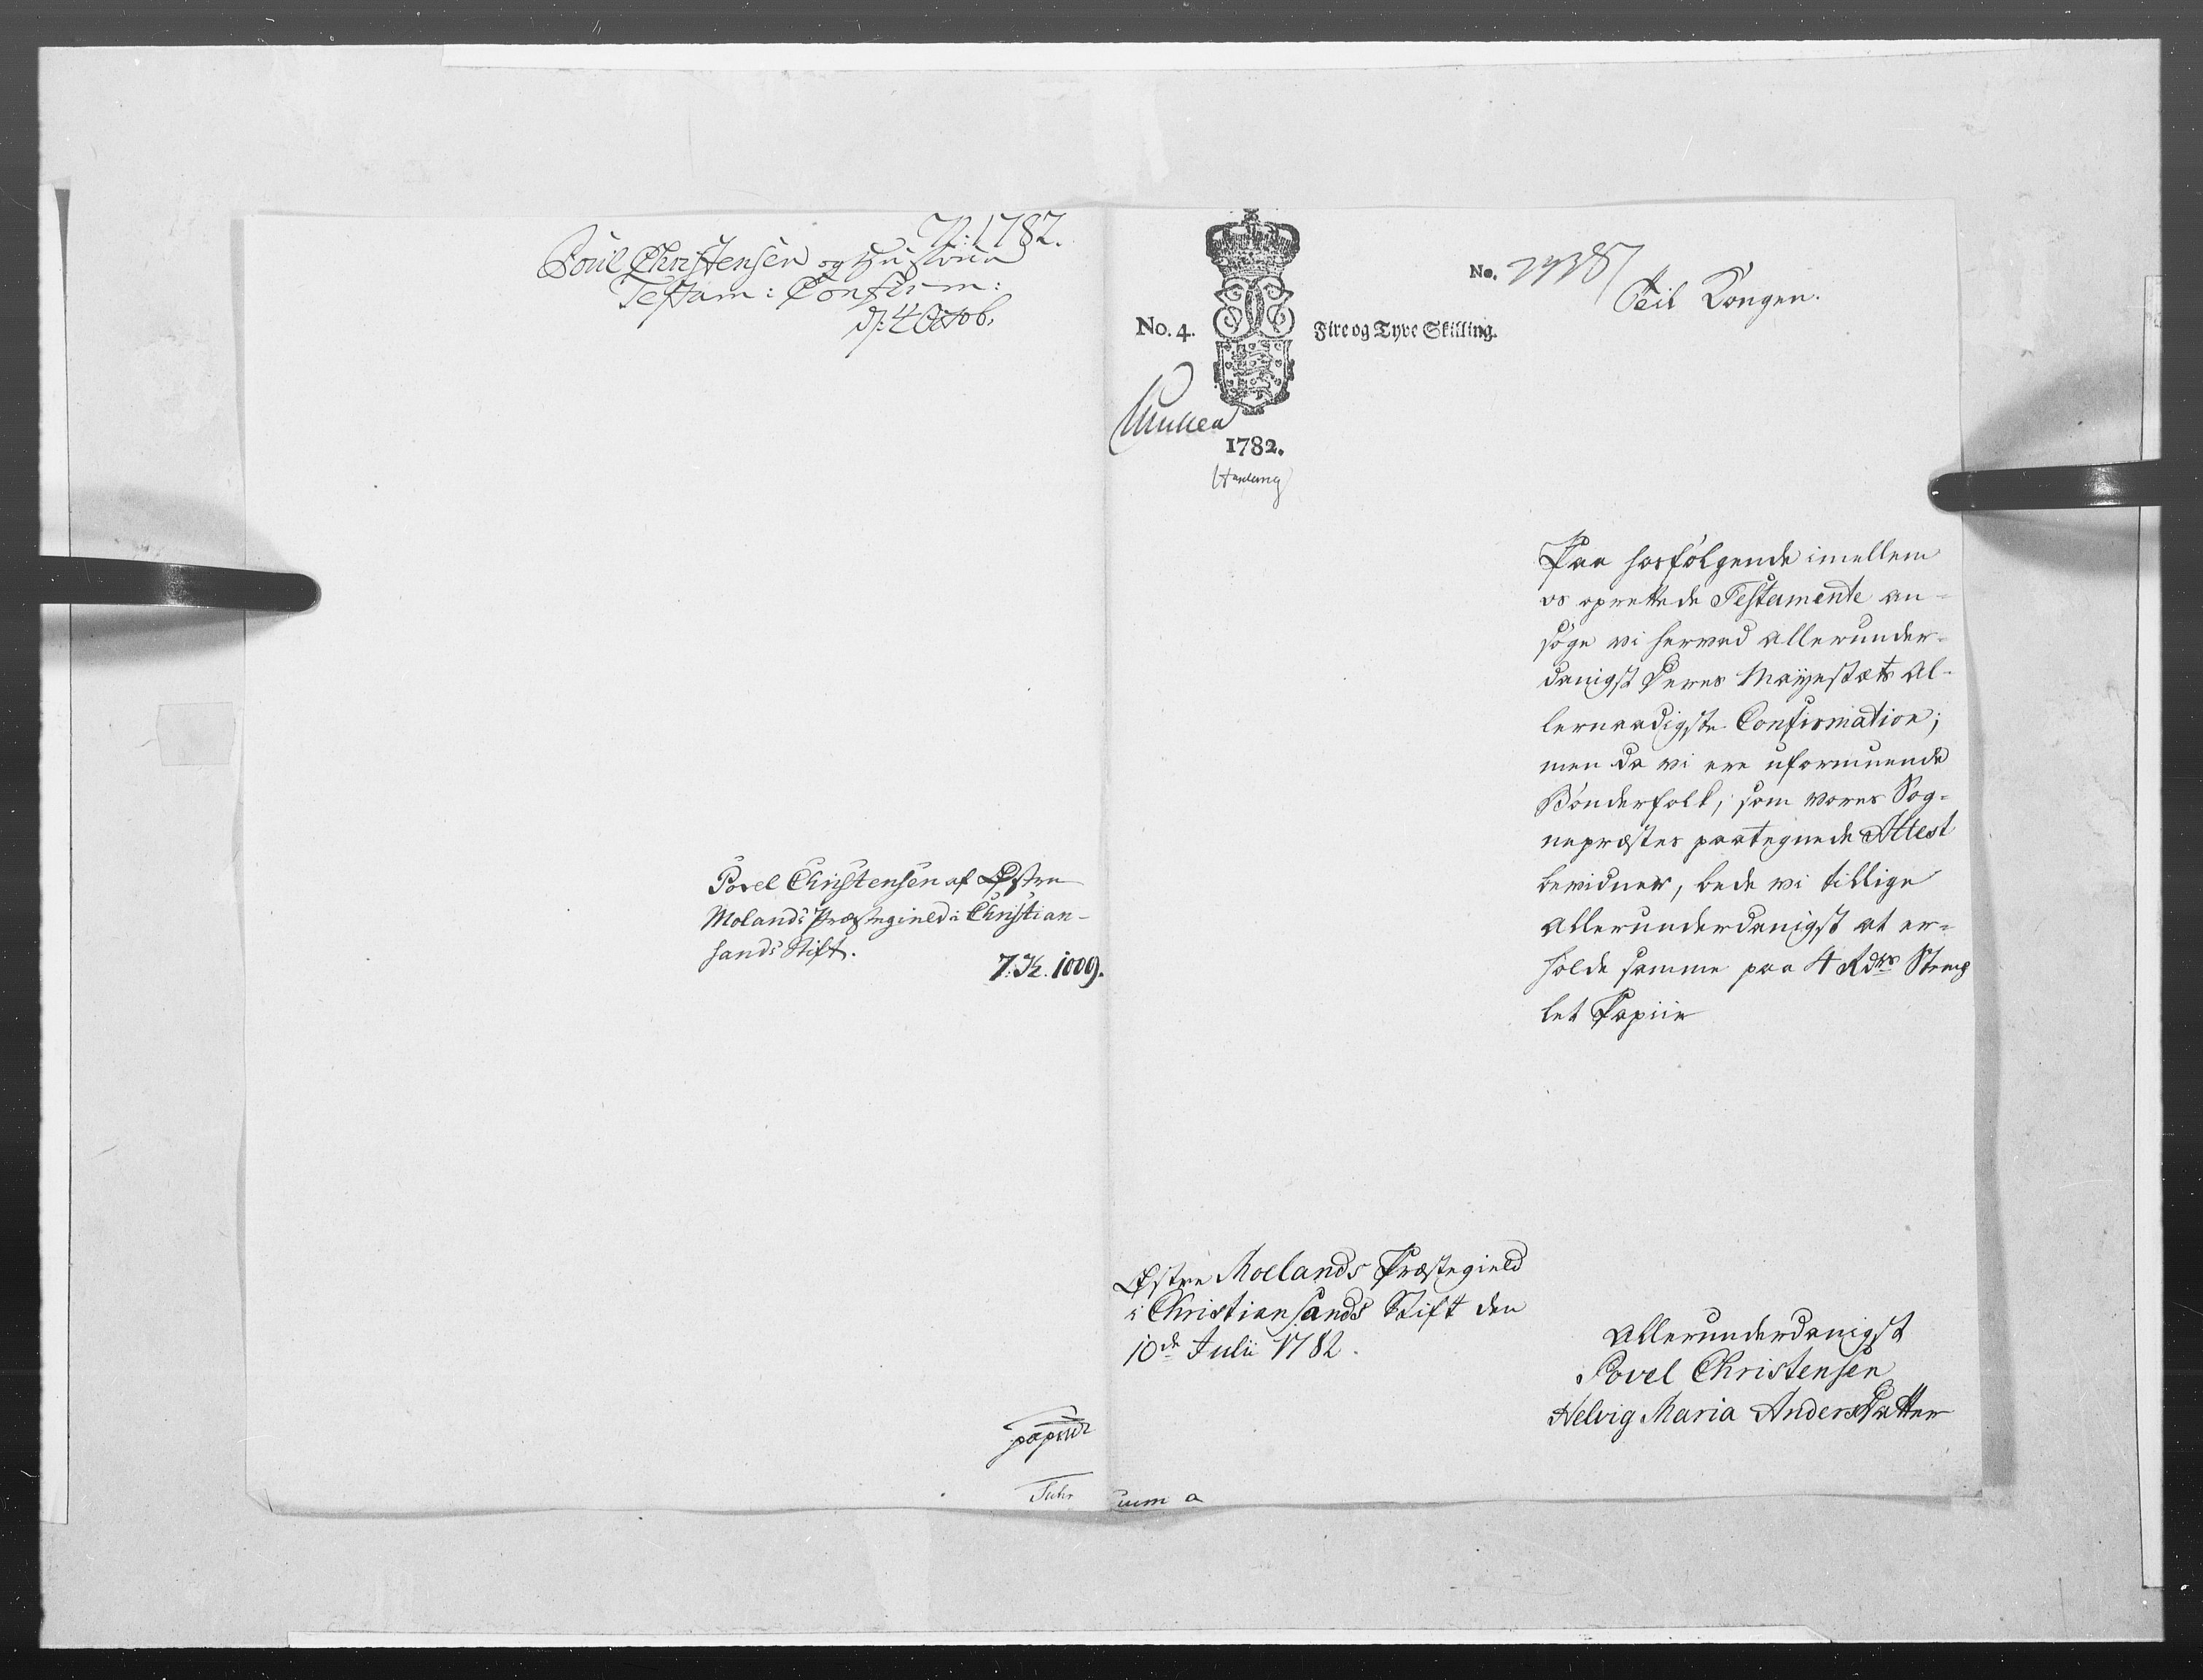 N: 1782.
Poul Christensen og Hustrue
Testam: Confirm:
d: 4 Octob.
Povel Christensen af Østre
Molands Præstegield i Christian-
sands Stift.
7. K. 1009.
papiir
No. 4.
Fire og Tyve Skilling.
1782.
No.
Teil Kongen.
Paa hosfølgende imellem
os oprettede Testamente an-
søge vi herved allerunder-
danigst Deres Mayestæts Al-
lernaadigste Confirmation;
men da vi ere uformuende
Bønderfolk, som vores Sog-
nepræstes paategnede Attest
bevidner, bede vi tillige
allerunderdanigst at er-
holde samme paa 4 Rdrs Stemp
let Papiir
Østre Moelands Præstegield
i Christiansands Stift den
10de Julii 1782.
Allerunderdanigst
Povel Christensen
Helvig Maria Anders Datter